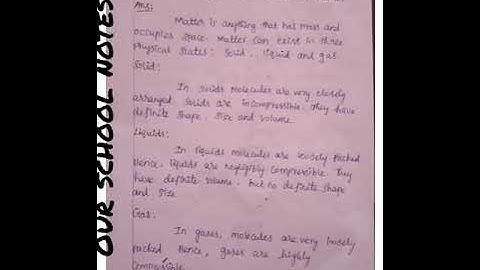 OUR SCHOOL NOTES
Ans:
Matter is anything that has mass and
occupies space. Matter can exist in three
physical states: Solid, liquid and gas.
Solid:
In solids molecules are very closely
arranged. Solids are incompressible. They have
definite shape, size and volume.
Liquids:
In liquids molecules are loosely packed
Hence, liquids are negligibly compressible. They
have definite volume. but no definite shape
and size
Gas:
In gases, molecules are very loosely
packed. Hence, gases are highly
compressible